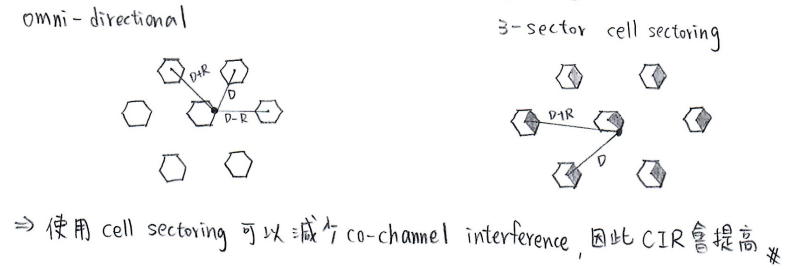 omni-directional
3-sector cell sectoring
D+R
D
D-R
D+R
D
⇒ 使用 cell sectoring 可以減少 co-channel interference, 因此 CIR 會提高 #